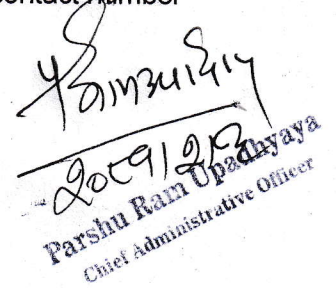 contact number
२०८१/२/८
Parshu Ram Upadhyaya
Chief Administrative Officer